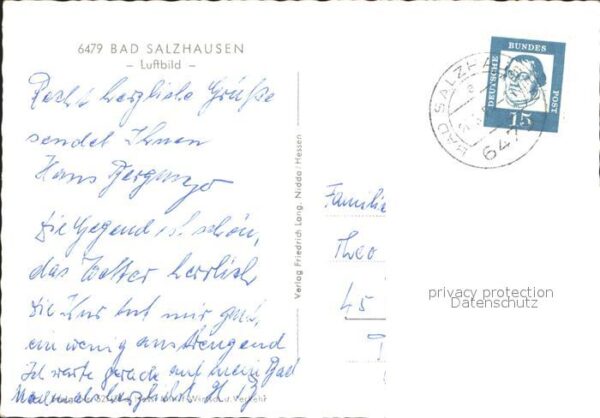 6479 BAD SALZHAUSEN
– Luftbild –
Recht herzliche Grüße
sendet Ihnen
Hans
Die Gegend ist schön,
das Wetter herrlich
Die Kur tut mir gut,
ein wenig anstrengend
Ich warte gerade auf mein Bad
Nochmals herzlichst H
Verlag Friedrich Lang, Nidda/Hessen
DEUTSCHE BUNDES POST
15
BAD SALZHA
647
Familie
Theo
45
privacy protection
Datenschutz